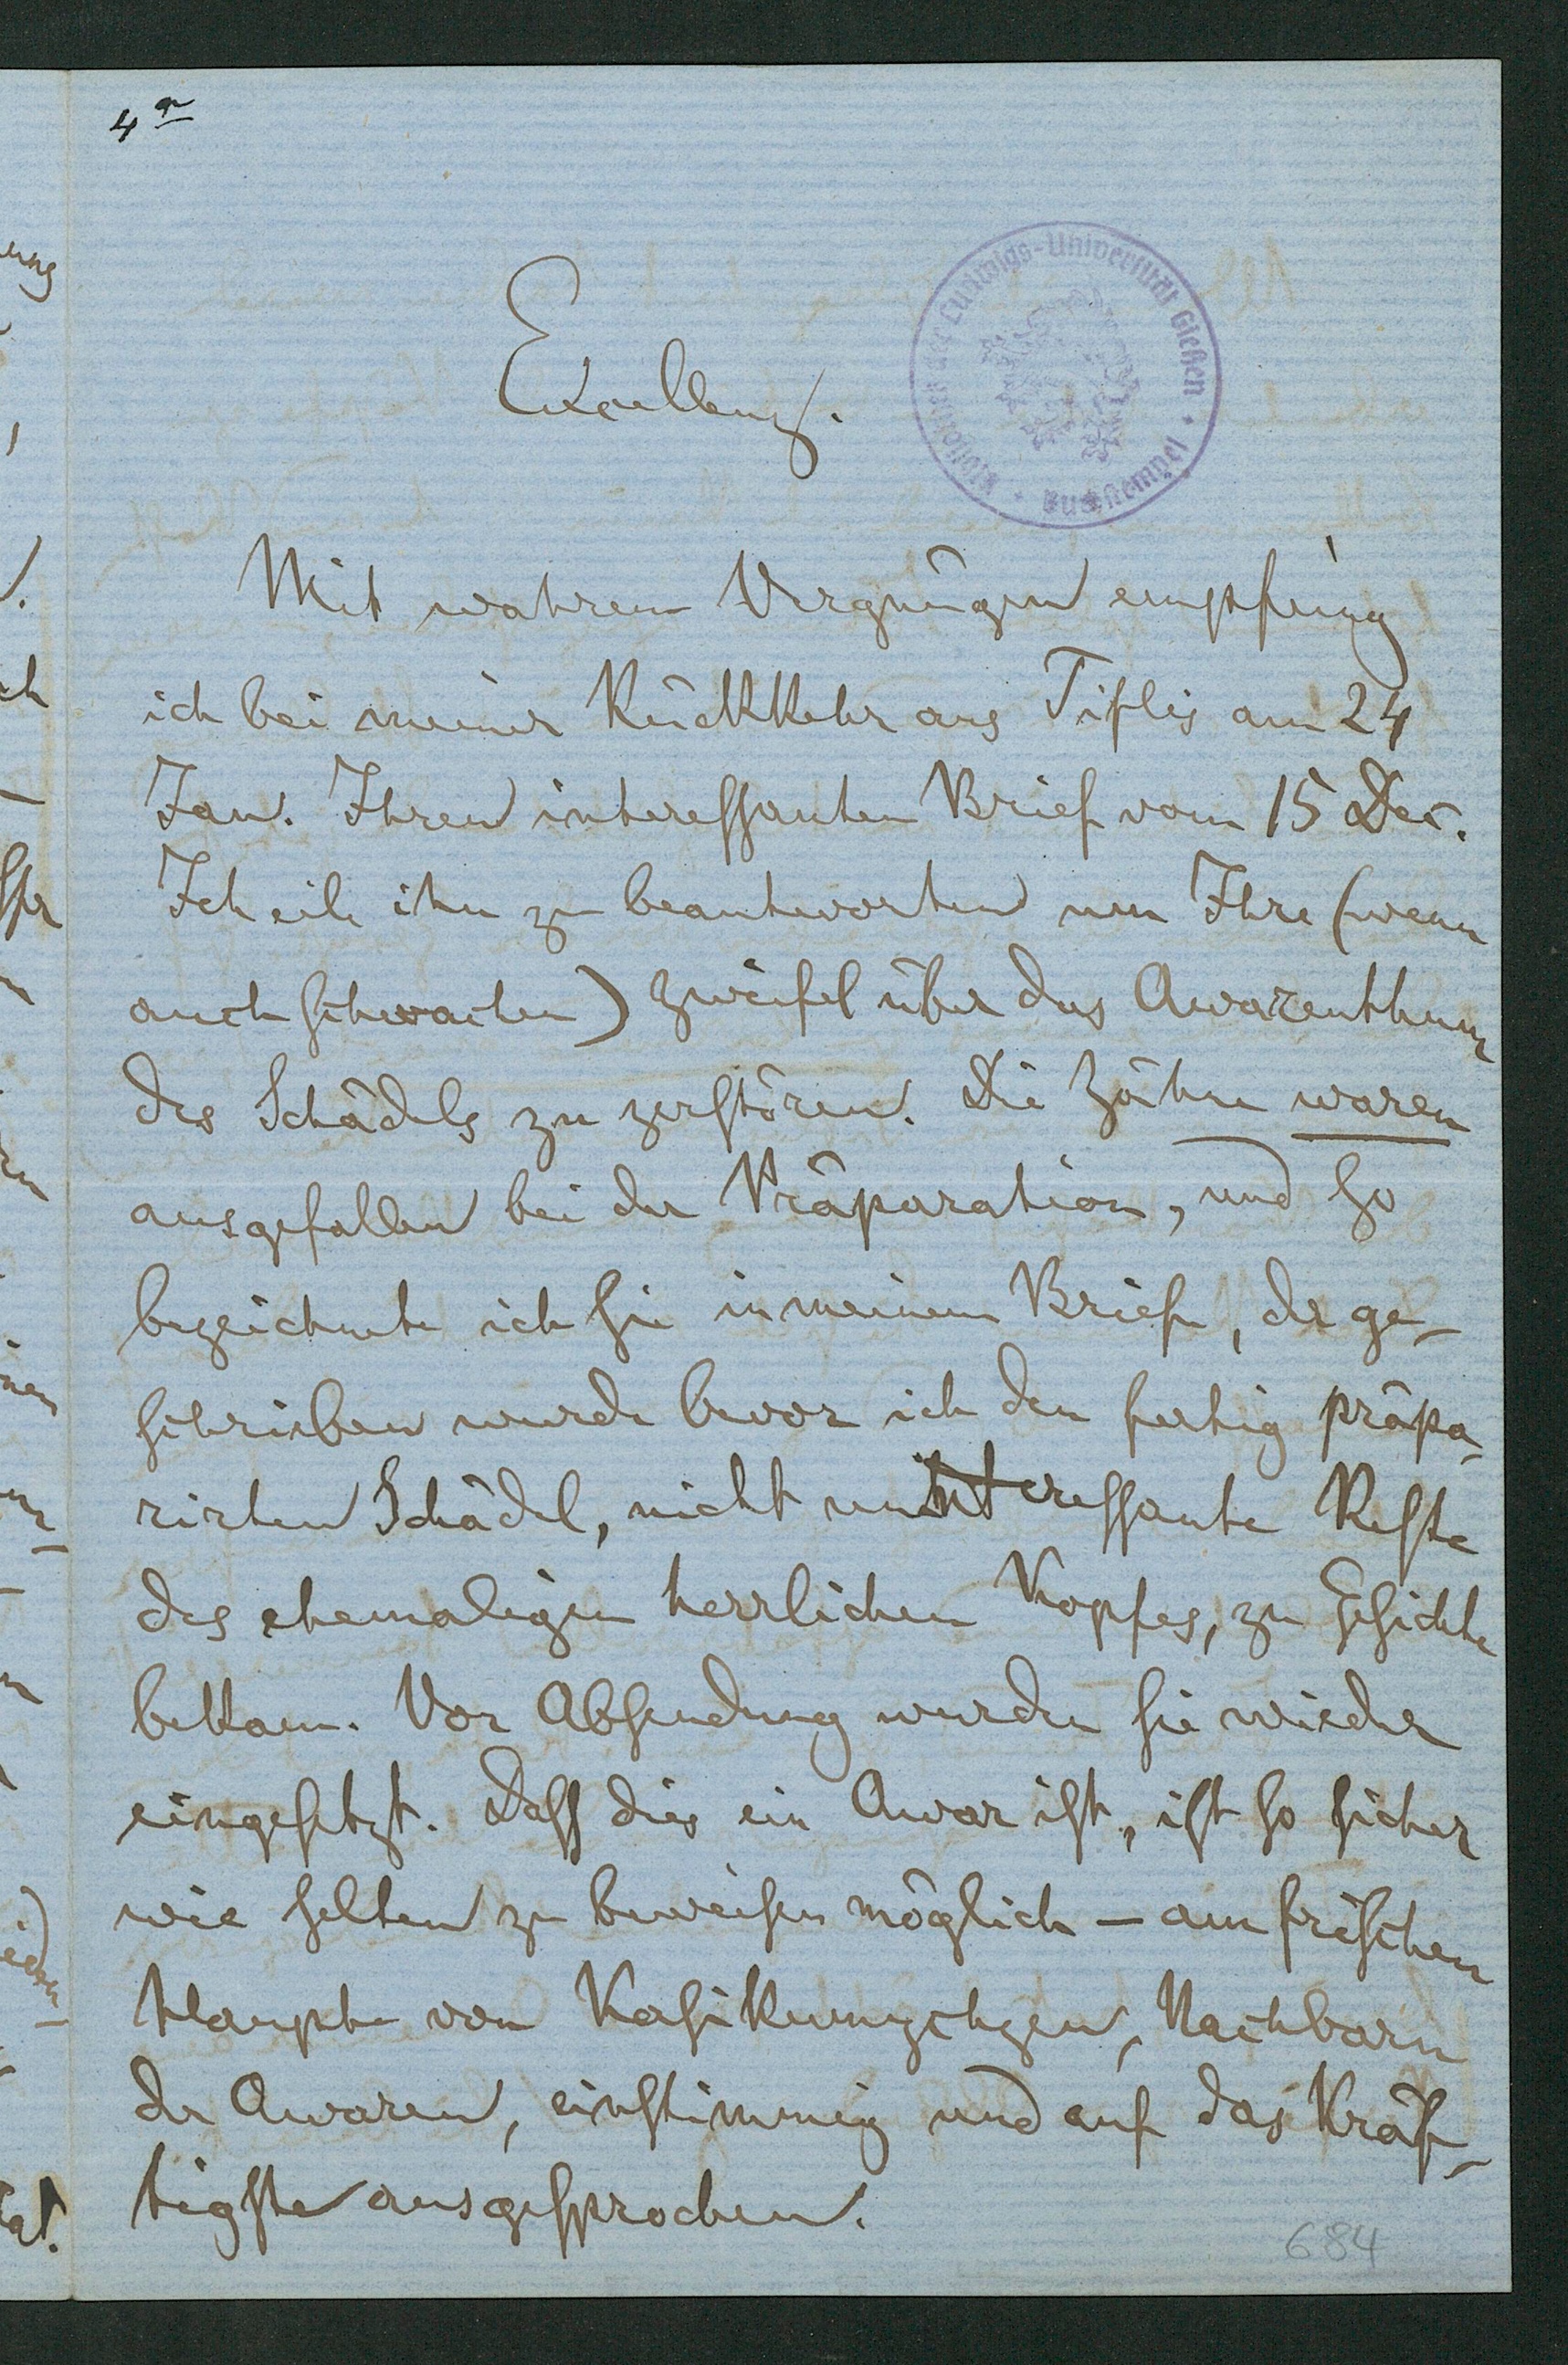 4a
Excellenz.
Bibliothek der Ludwigs-Universität Gießen · Buchstempel ·
Mit wahrem Vergnügen empfing
ich bei meiner Rückkehr aus Tiflis am 24
Jan. Ihren interessanten Brief vom 15 Dec.
Ich eile ihn zu beantworten um Ihre (wenn
auch schwachen) Zweifel über das Awarenthum
des Schädels zu zerstören. Die Zähne waren
ausgefallen bei der Präparation, und so
bezeichnete ich sie in meinem Briefe, der ge-
schrieben wurde bevor ich den fertig präpa-
rirten Schädel, nicht uninteressante Reste
des ehemaligen herrlichen Kopfes, zu Gesichte
bekam. Vor Absendung wurden sie wieder
eingesetzt. Dass dies ein Awar ist, ist so sicher
wie selten zu beweisen möglich — am frischen
Haupte von Kasikumychzen, Nachbarn
der Awaren, einstimmig und auf das Kräf-
tigste ausgesprochen.
684